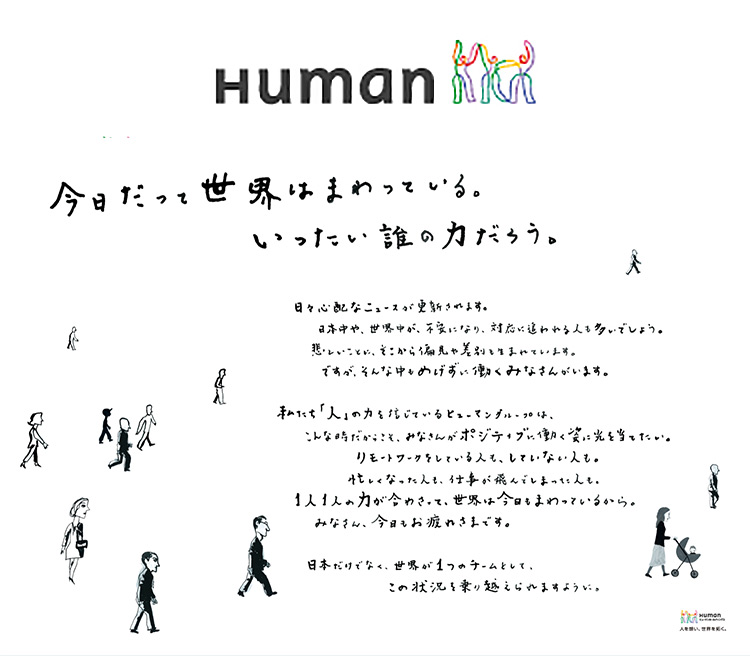 Human
今日だって世界はまわっている。
いったい誰の力だろう。
日々心配なニュースが更新されます。
日本中や、世界中が、不安になり、対応に追われる人も多いでしょう。
悲しいことに、そこから偏見や差別も生まれています。
ですが、そんな中もめげずに働くみなさんがいます。
私たち「人」の力を信じているヒューマングループは、
こんな時だからこそ、みなさんがポジティブに働く姿に光を当てたい。
リモートワークをしている人も、していない人も。
忙しくなった人も、仕事が飛んでしまった人も。
1人1人の力が合わさって、世界は今日もまわっているから。
みなさん、今日もお疲れさまです。
日本だけでなく、世界が1つのチームとして、
この状況を乗り越えられますように。
Human
人を想い、世界を拓く。